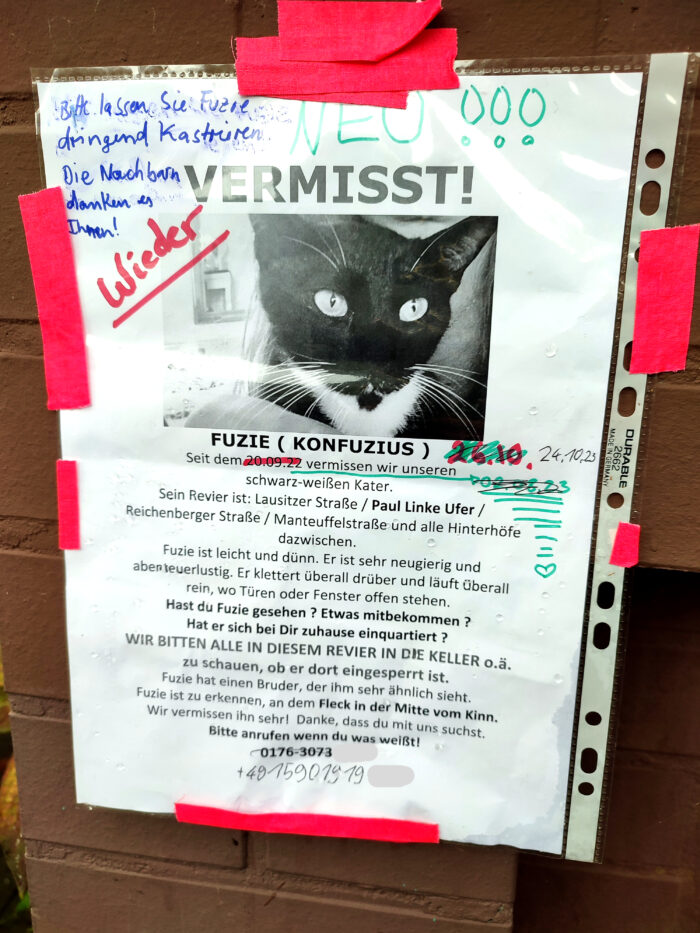 Bitte lassen Sie Fuzie
dringend Kastrieren.
Die Nachbarn
danken es
Ihnen!
NEU !!!
VERMISST!
Wieder
FUZIE ( KONFUZIUS )
26.10. 24.10.23
Seit dem 20.09.22 vermissen wir unseren
schwarz-weißen Kater.
Sein Revier ist: Lausitzer Straße / Paul Linke Ufer /
Reichenberger Straße / Manteuffelstraße und alle Hinterhöfe
dazwischen.
Fuzie ist leicht und dünn. Er ist sehr neugierig und
abenteuerlustig. Er klettert überall drüber und läuft überall
rein, wo Türen oder Fenster offen stehen.
Hast du Fuzie gesehen ? Etwas mitbekommen ?
Hat er sich bei Dir zuhause einquartiert ?
WIR BITTEN ALLE IN DIESEM REVIER IN DIE KELLER o.ä.
zu schauen, ob er dort eingesperrt ist.
Fuzie hat einen Bruder, der ihm sehr ähnlich sieht.
Fuzie ist zu erkennen, an dem Fleck in der Mitte vom Kinn.
Wir vermissen ihn sehr! Danke, dass du mit uns suchst.
Bitte anrufen wenn du was weißt!
0176-3073
+4915901919
DURABLE
2662 MADE IN GERMANY